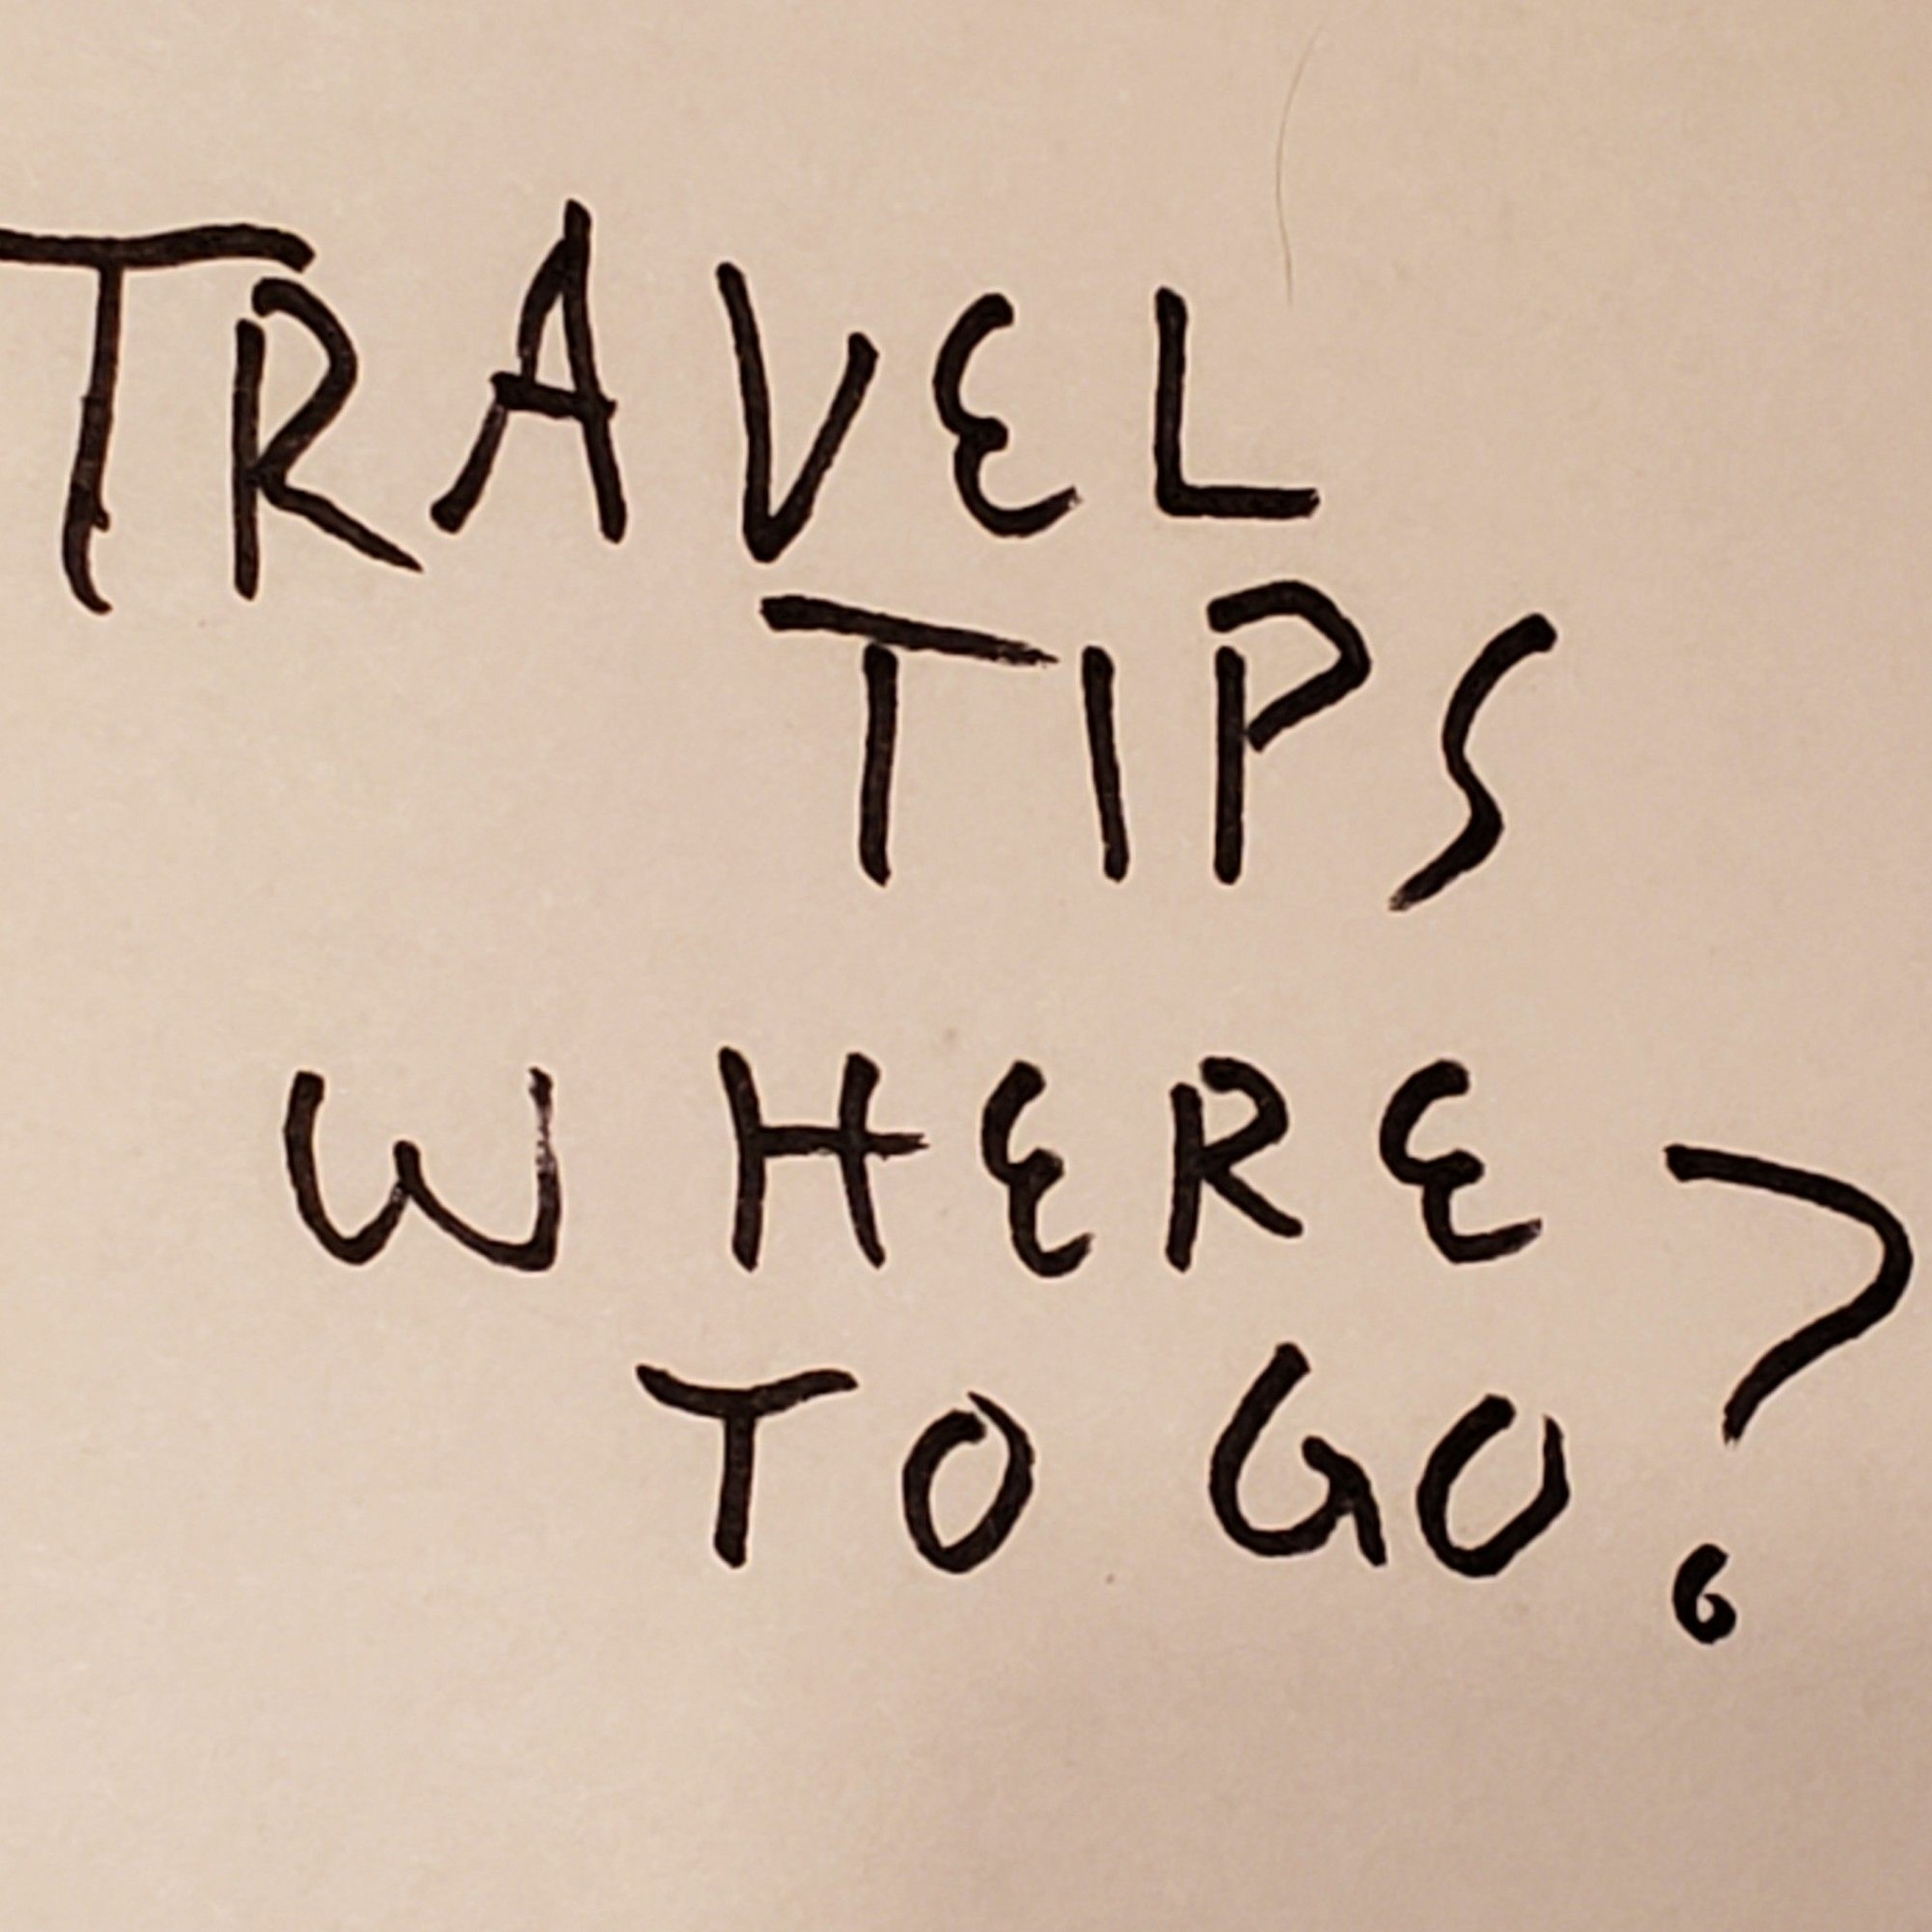 TRAVEL
TIPS
WHERE
TO GO?